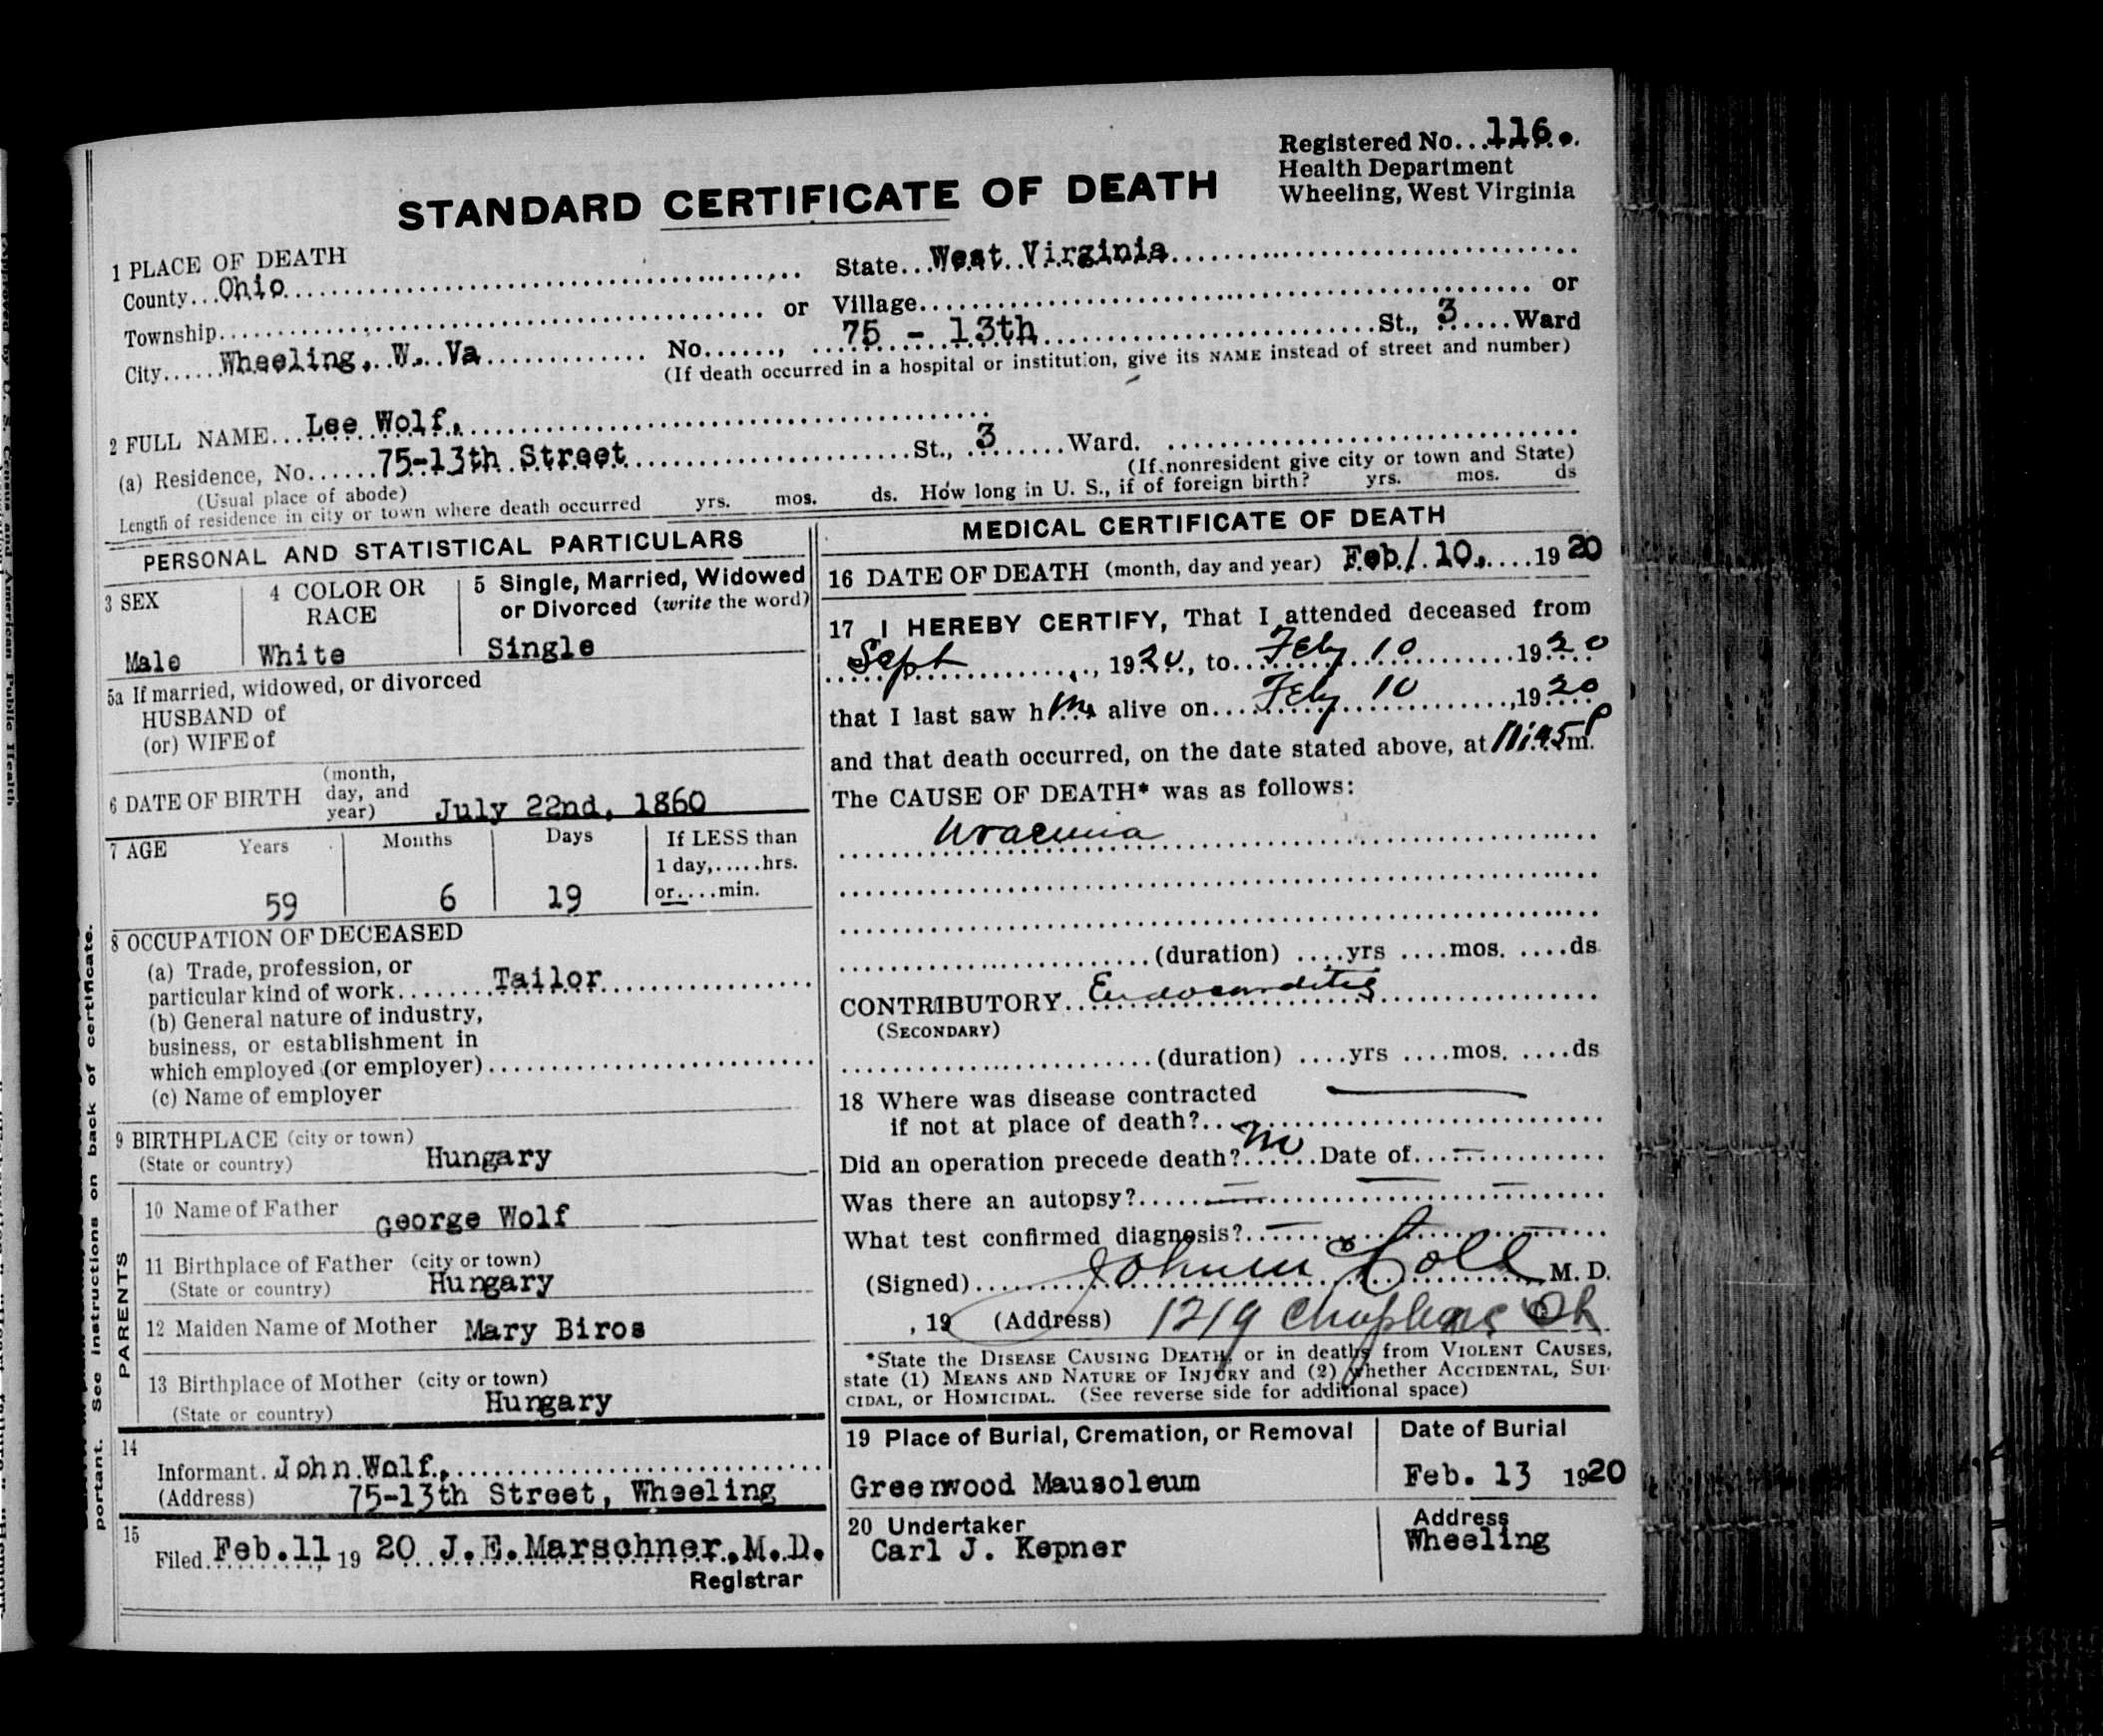 Registered No...116.
Health Department
Wheeling, West Virginia
STANDARD CERTIFICATE OF DEATH
1 PLACE OF DEATH
County...Ohio State...West Virginia
Township or Village or
City Wheeling, W. Va No......, 75 - 13th St., 3 Ward
(If death occurred in a hospital or institution, give its NAME instead of street and number)
2 FULL NAME...Lee Wolf.
(a) Residence, No......75-13th Street St., 3 Ward.
(Usual place of abode) (If nonresident give city or town and State)
Length of residence in city or town where death occurred yrs. mos. ds. How long in U. S., if of foreign birth? yrs. mos. ds
PERSONAL AND STATISTICAL PARTICULARS
3 SEX
Male
4 COLOR OR RACE
White
5 Single, Married, Widowed
or Divorced (write the word)
Single
5a If married, widowed, or divorced
HUSBAND of
(or) WIFE of
6 DATE OF BIRTH (month, day, and year) July 22nd, 1860
7 AGE Years Months Days If LESS than
1 day,......hrs.
59 6 19 or....min.
8 OCCUPATION OF DECEASED
(a) Trade, profession, or
particular kind of work........Tailor
(b) General nature of industry,
business, or establishment in
which employed (or employer)
(c) Name of employer
9 BIRTHPLACE (city or town)
(State or country) Hungary
PARENTS
10 Name of Father George Wolf
11 Birthplace of Father (city or town)
(State or country) Hungary
12 Maiden Name of Mother Mary Biros
13 Birthplace of Mother (city or town)
(State or country) Hungary
14
Informant. John Wolf.
(Address) 75-13th Street, Wheeling
15
Filed Feb. 11, 19 20 J. E. Marschner, M. D.
Registrar
MEDICAL CERTIFICATE OF DEATH
16 DATE OF DEATH (month, day and year) Feb/ 10, 19 20
17 I HEREBY CERTIFY, That I attended deceased from
Sept, 1920, to Feby 10 1920
that I last saw him alive on Feby 10, 1920
and that death occurred, on the date stated above, at 11:45 P m.
The CAUSE OF DEATH* was as follows:
Uraemia
(duration) ....yrs ....mos. ....ds.
CONTRIBUTORY Endocarditis
(SECONDARY)
(duration) ....yrs ....mos. ....ds
18 Where was disease contracted
if not at place of death?
Did an operation precede death? no Date of
Was there an autopsy?
What test confirmed diagnosis?
(Signed) M. D.
, 19 (Address) 1219
*State the DISEASE CAUSING DEATH, or in deaths from VIOLENT CAUSES,
state (1) MEANS AND NATURE OF INJURY and (2) whether ACCIDENTAL, SUI-
CIDAL, or HOMICIDAL. (See reverse side for additional space)
19 Place of Burial, Cremation, or Removal
Greenwood Mausoleum
Date of Burial
Feb. 13 1920
20 Undertaker
Carl J. Kepner
Address
Wheeling
portant. See instructions on back of certificate.